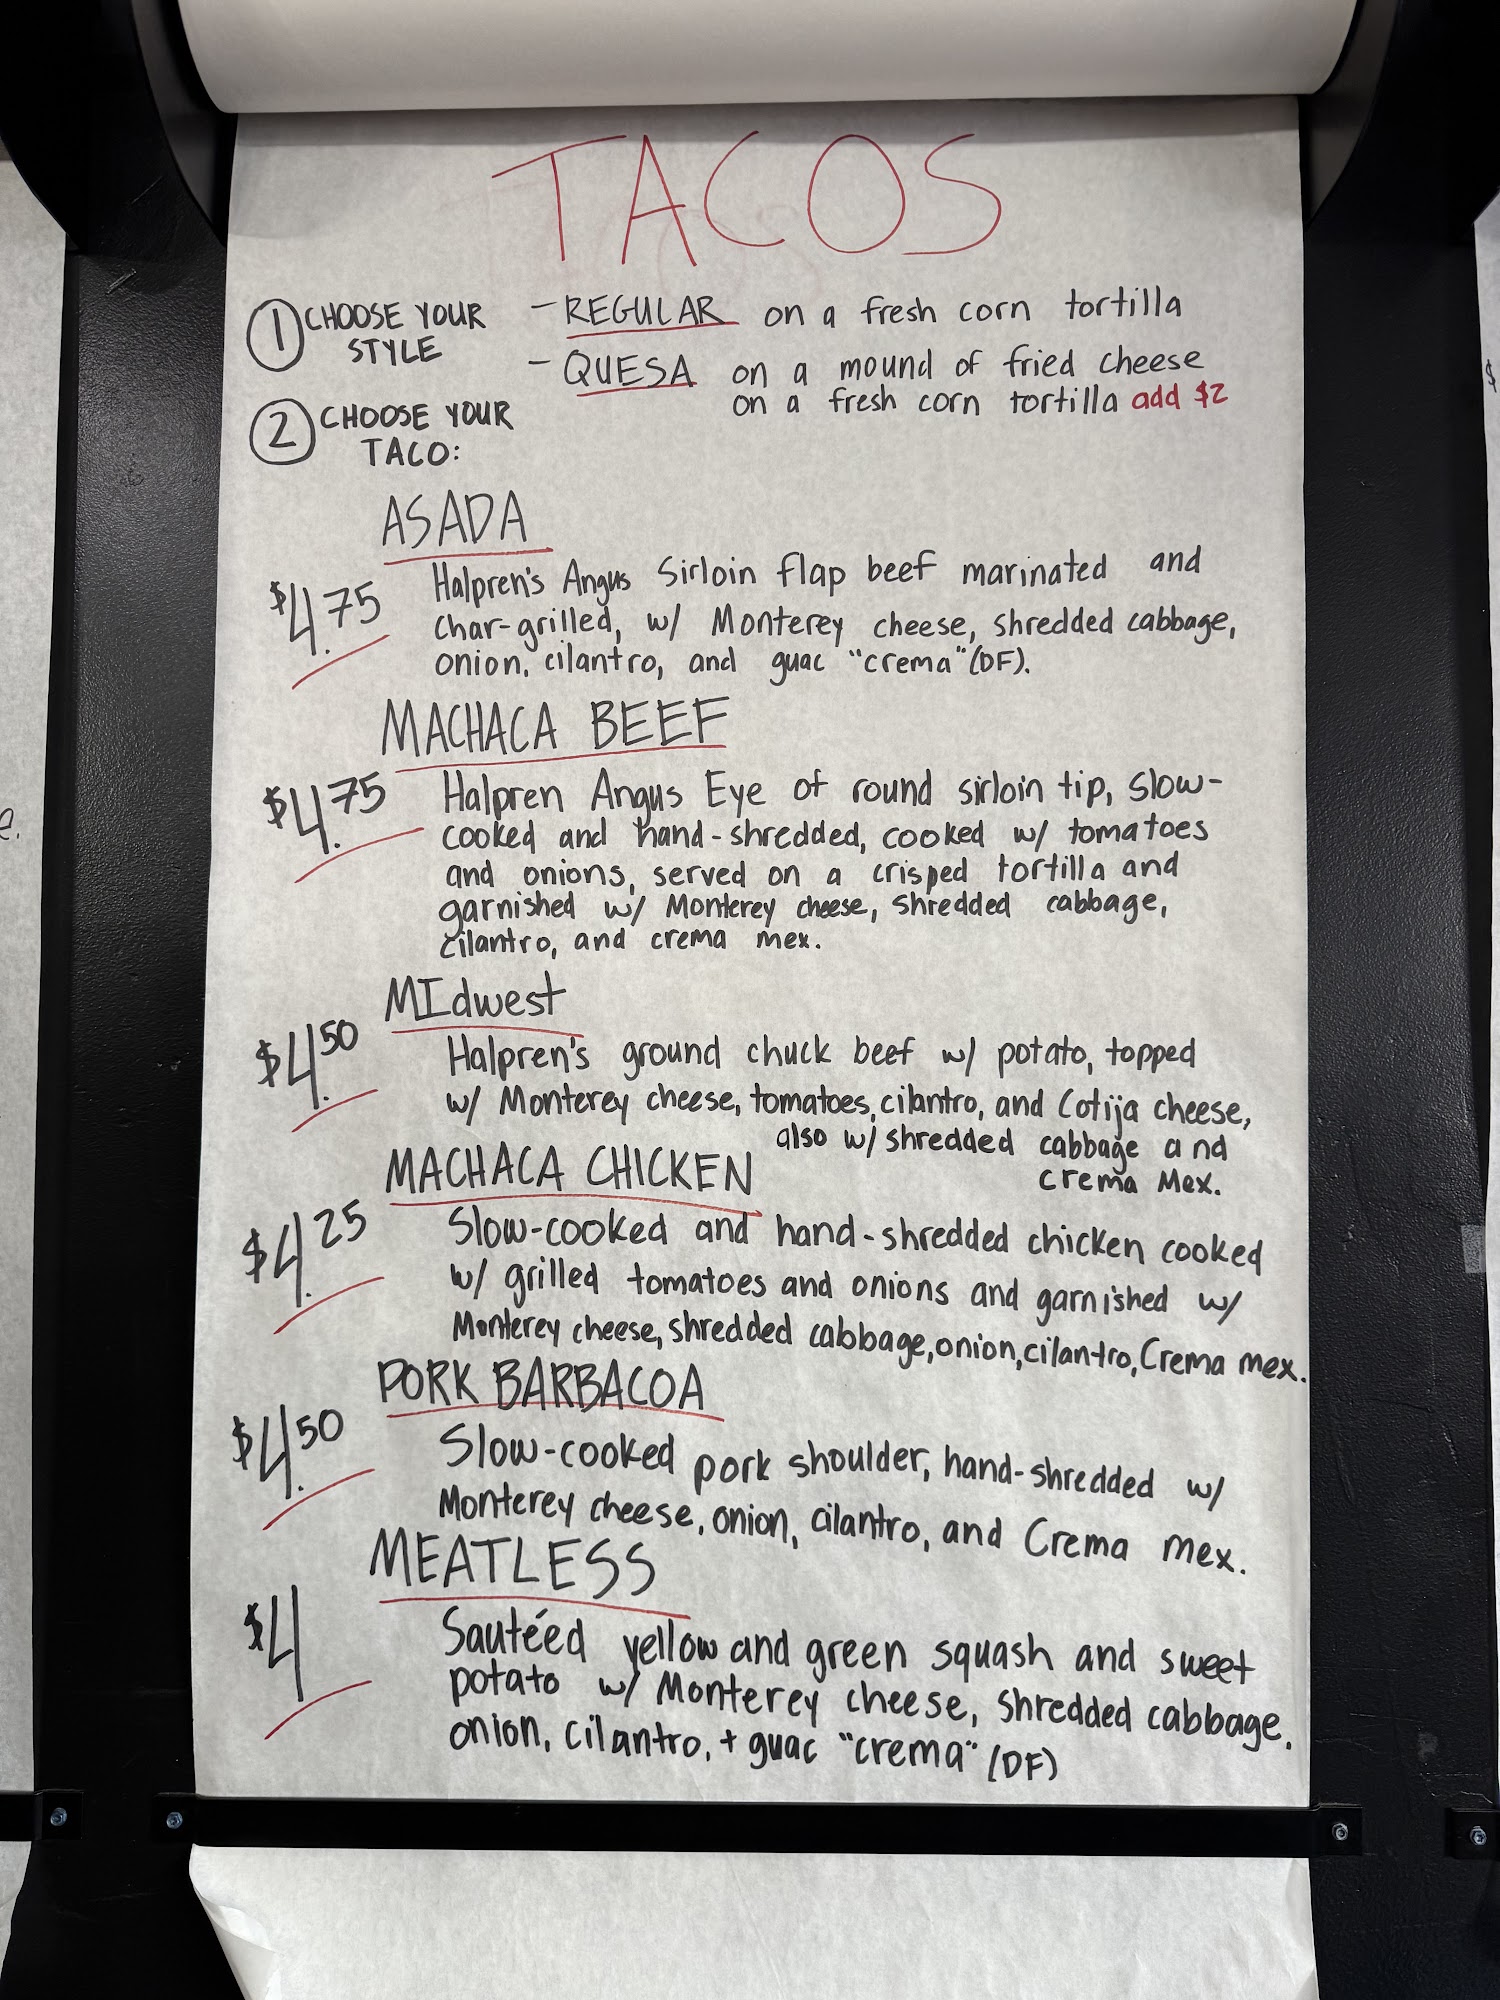 TACOS
① CHOOSE YOUR STYLE
- REGULAR on a fresh corn tortilla
- QUESA on a mound of fried cheese
on a fresh corn tortilla add $2
② CHOOSE YOUR
TACO:
ASADA
$4.75
Halpren's Angus Sirloin flap beef marinated and
char-grilled, w/ Monterey cheese, shredded cabbage,
onion, cilantro, and guac "crema" (DF).
MACHACA BEEF
$4.75
Halpren Angus Eye of round sirloin tip, slow-
cooked and hand-shredded, cooked w/ tomatoes
and onions, served on a crisped tortilla and
garnished w/ Monterey cheese, shredded cabbage,
cilantro, and crema mex.
MIdwest
$4.50
Halpren's ground chuck beef w/ potato, topped
w/ Monterey cheese, tomatoes, cilantro, and Cotija cheese,
also w/ shredded cabbage and
crema Mex.
MACHACA CHICKEN
$4.25
Slow-cooked and hand-shredded chicken cooked
w/ grilled tomatoes and onions and garnished w/
Monterey cheese, shredded cabbage, onion, cilantro, Crema mex.
PORK BARBACOA
$4.50
Slow-cooked pork shoulder, hand-shredded w/
Monterey cheese, onion, cilantro, and Crema mex.
MEATLESS
$4
Sautéed yellow and green squash and sweet
potato w/ Monterey cheese, shredded cabbage,
onion, cilantro, + guac "crema" (DF)
e.
$